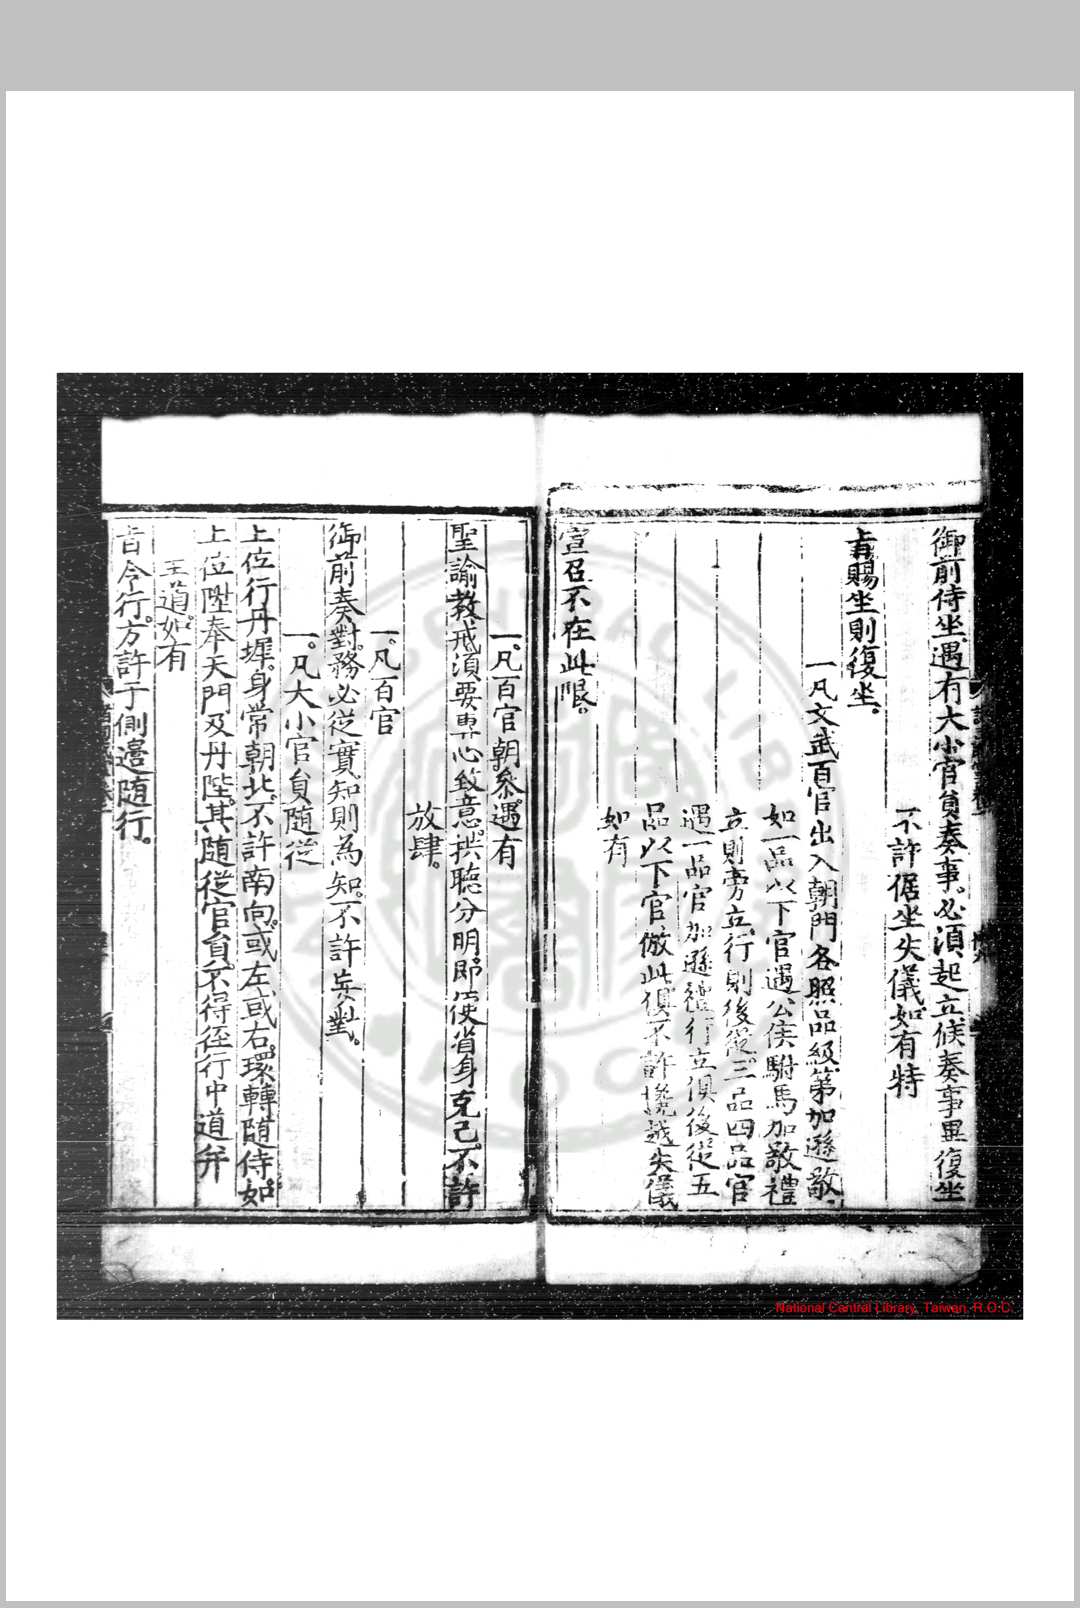 御前侍坐遇有大小官員奏事。必須起立候奏事畢復坐
一不許倨坐失儀如有特
旨賜坐則復坐。
一凡文武百官出入朝門各照品級第加遜敬。
如一品以下官遇公侯駙馬加敬禮
立則旁立行則後從。三品四品官
遇一品官加遜禮行立俱後從五
品以下官倣此俱不許攙越失儀
如有
宣召不在此限。
一。凡百官朝參。遇有
聖諭教戒須要專心致意。拱聽分明。即便省身克己。不許
放肆。
一。凡百官
御前奏對。務必從實知則為知。不許妄對。
一。凡大小官員隨從
上位行丹墀。身常朝北。不許南向。或左或右。環轉隨侍。如
上位陞奉天門及丹陛。其隨從官員。不得徑行中道并
王道。如有
旨令行。方許于側邊隨行。
National Central Library, Taiwan, R.O.C